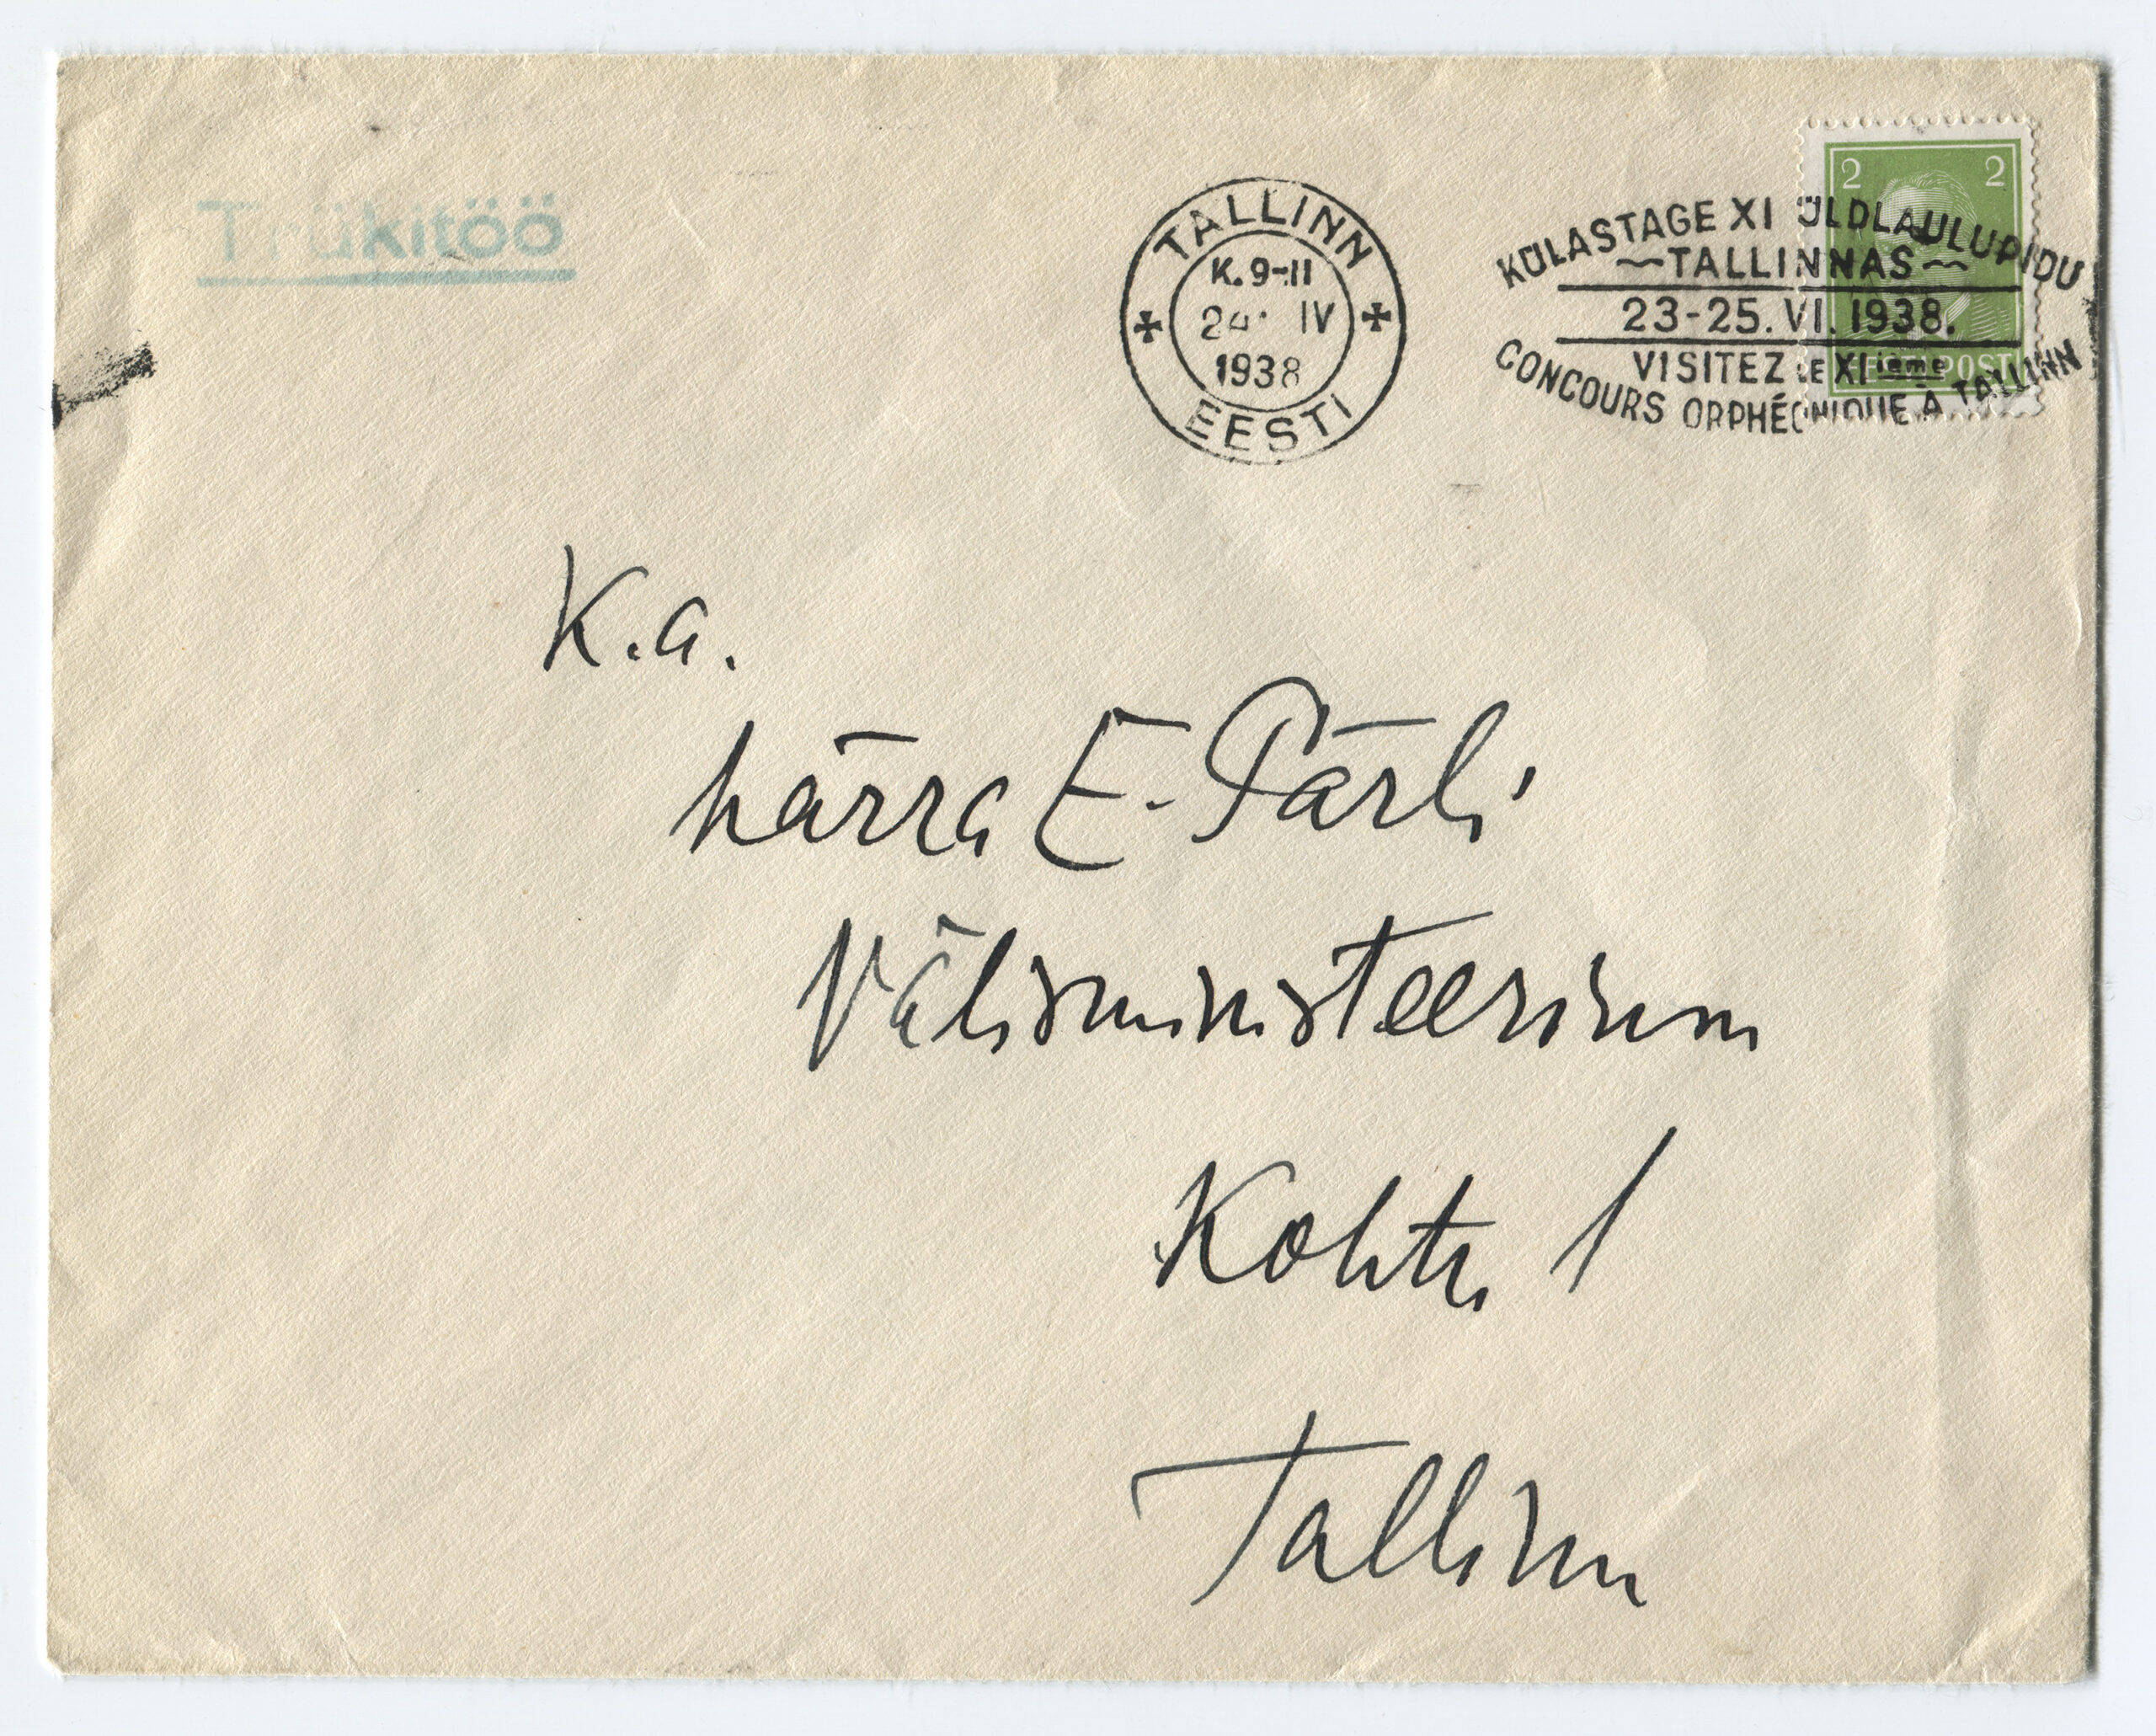 Trükitöö
TALLINN
K. 9-11
IV
1938
EESTI
2 2
KÜLASTAGE XI ÜLDLAULUPIDU
~TALLINNAS~
23-25. VI. 1938.
VISITEZ LE XI ième
CONCOURS ORPHÉONIQUE À TALLINN
POST
K.a.
härra E. Pärli
Välisministeerium
Kohtu 1
Tallinn